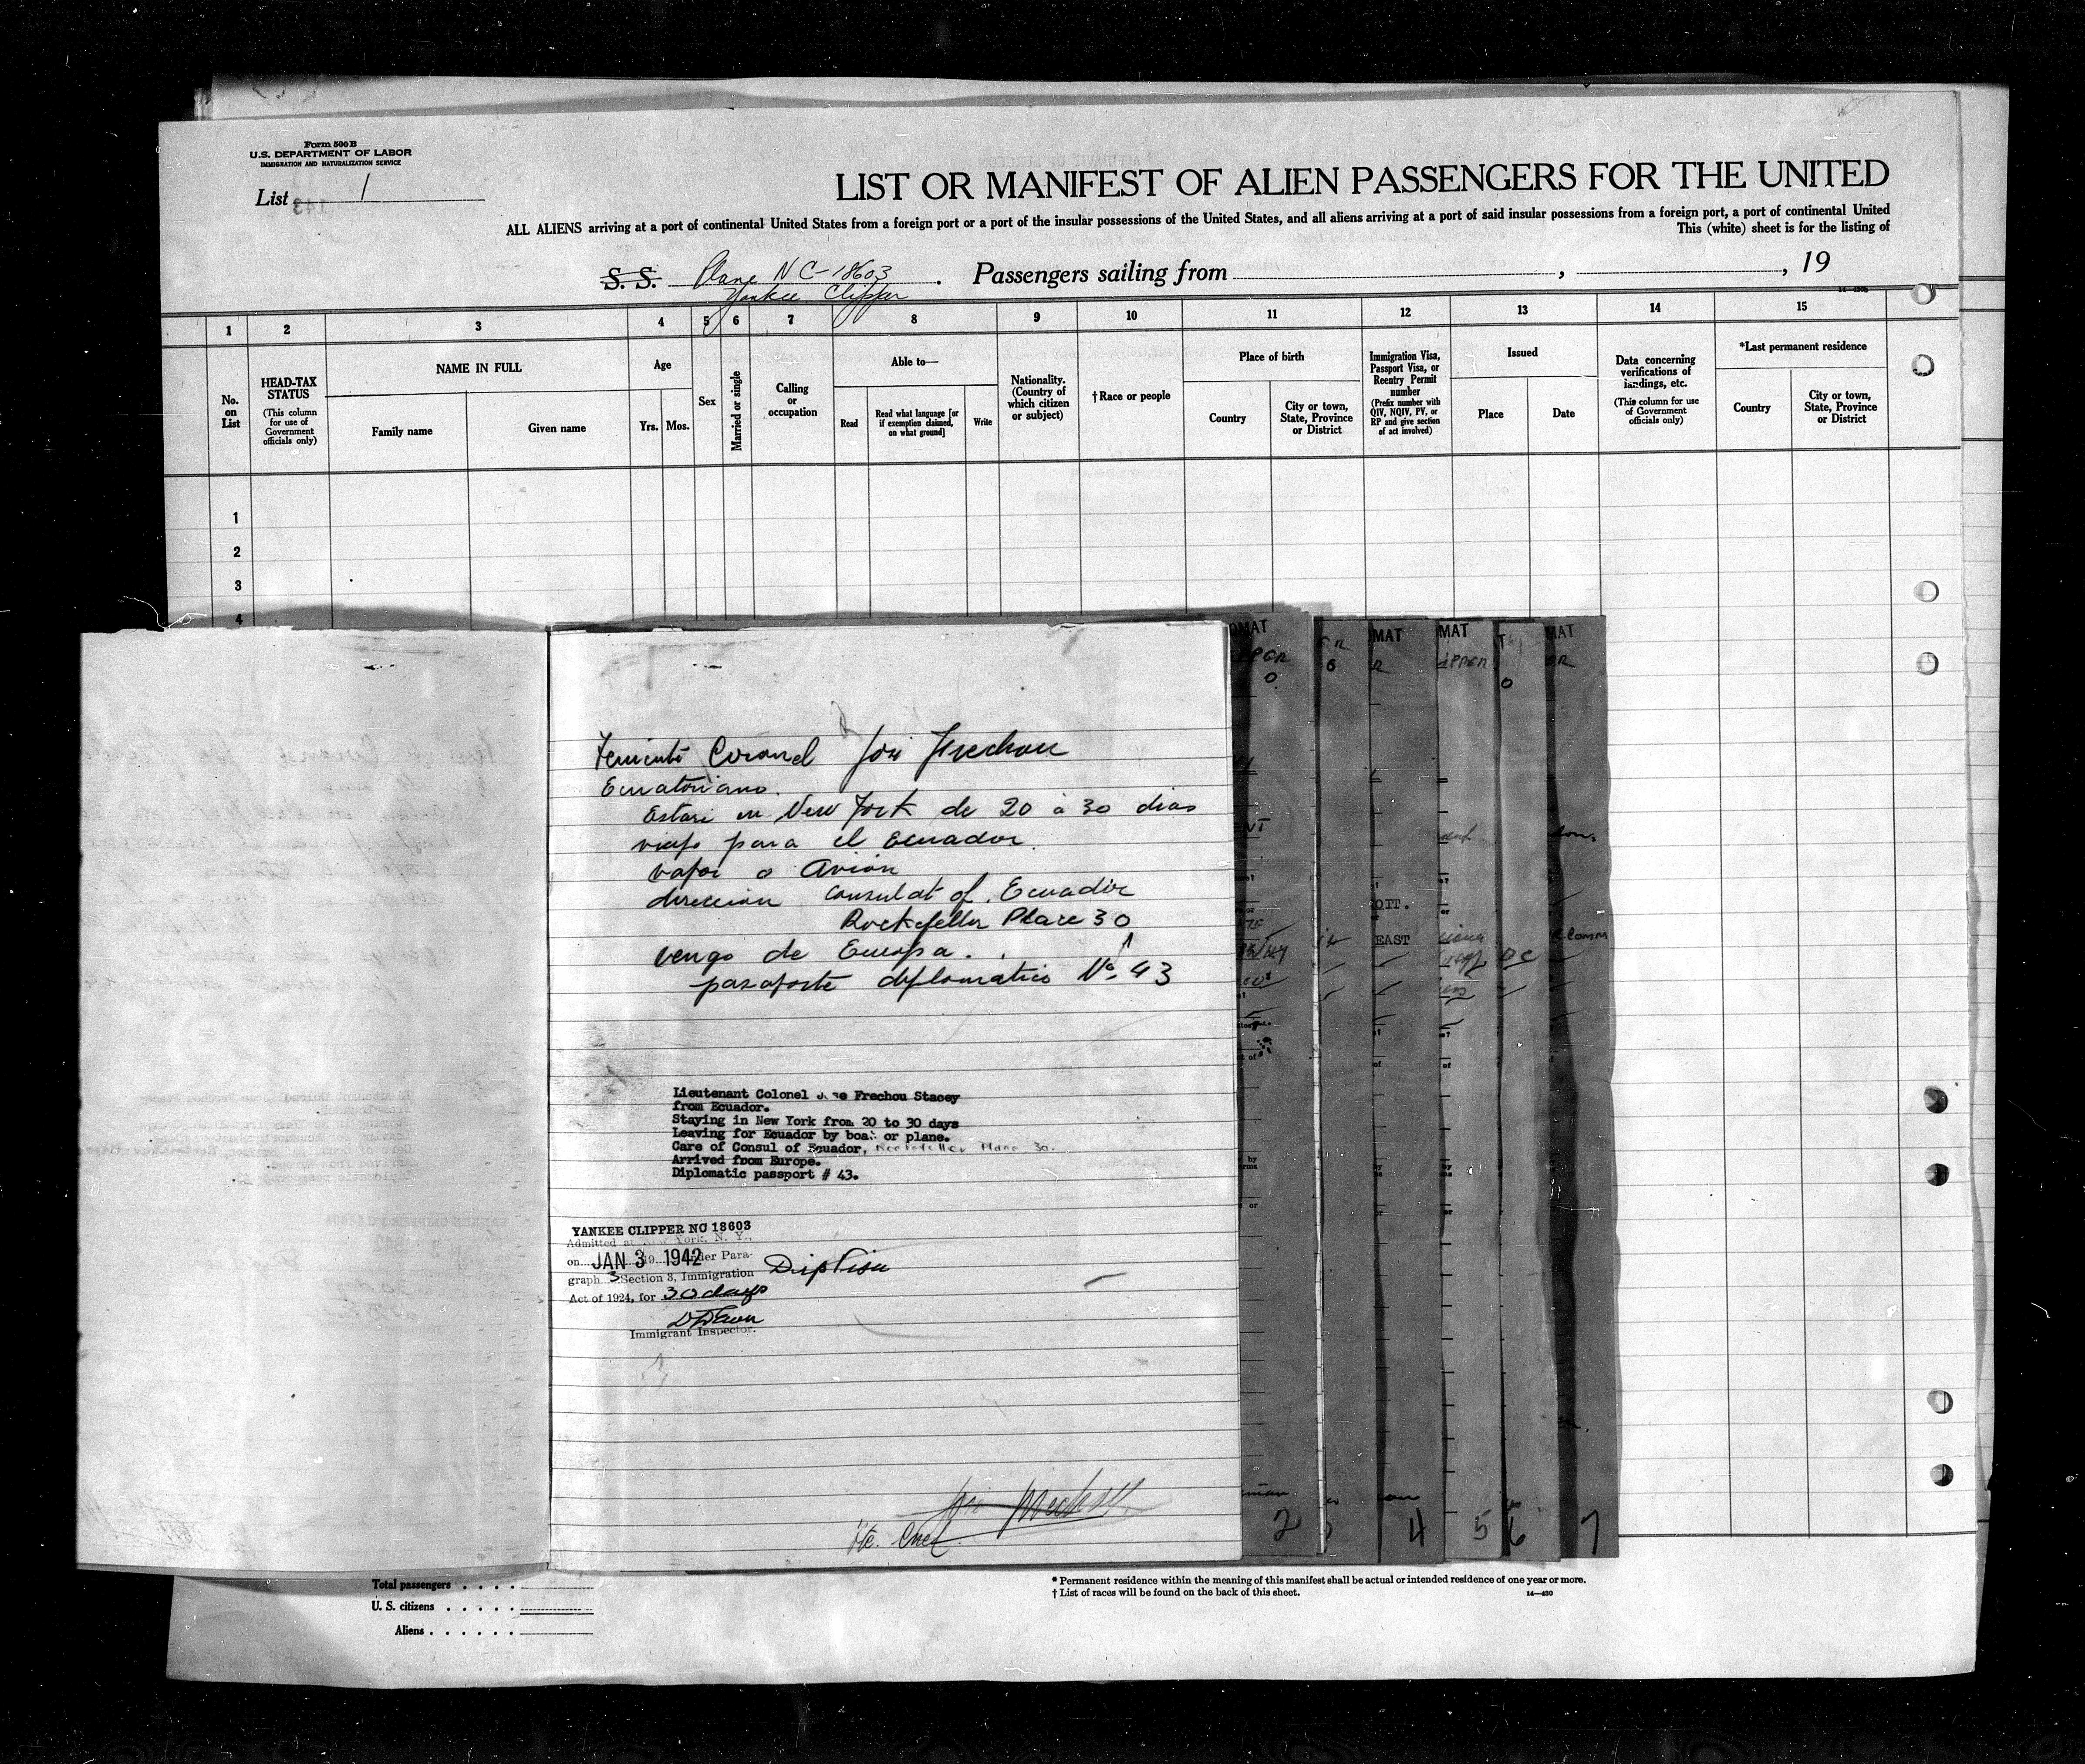 Form 500 B
U.S. DEPARTMENT OF LABOR
IMMIGRATION AND NATURALIZATION SERVICE
List 1
LIST OR MANIFEST OF ALIEN PASSENGERS FOR THE UNITED
ALL ALIENS arriving at a port of continental United States from a foreign port or a port of the insular possessions of the United States, and all aliens arriving at a port of said insular possessions from a foreign port, a port of continental United
This (white) sheet is for the listing of
S. S. Plane NC-18603 . Passengers sailing from , , 19
Yankee Clipper
1 2 3 4 5 6 7 8 9 10 11 12 13 14 15
No. on List
HEAD-TAX STATUS
(This column for use of Government officials only)
NAME IN FULL
Family name
Given name
Age
Yrs. Mos.
Sex
Married or single
Calling or occupation
Able to—
Read
Read what language [or if exemption claimed, on what ground]
Write
Nationality. (Country of which citizen or subject)
†Race or people
Place of birth
Country
City or town, State, Province or District
Immigration Visa, Passport Visa, or Reentry Permit number
(Prefix number with QIV, NQIV, PV, or RP and give section of act involved)
Issued
Place
Date
Data concerning verifications of landings, etc.
(This column for use of Government officials only)
*Last permanent residence
Country
City or town, State, Province or District
1
2
3
4
Teniente Coronel José Frechou
Ecuatoriano.
Estaré en New York de 20 à 30 dias
viaje para el Ecuador.
vapor o Avión
direccion consulat of Ecuador
Rockefeller Place 30
vengo de Europa.
pasaporte diplomatico No. 43
Lieutenant Colonel Jose Frechou Stacey
from Ecuador.
Staying in New York from 20 to 30 days
Leaving for Ecuador by boat or plane.
Care of Consul of Ecuador, Rockefeller Plane 30.
Arrived from Europe.
Diplomatic passport # 43.
YANKEE CLIPPER NC 18603
Admitted at New York, N. Y.,
on JAN 3 19 1942 under Para-
graph 3 Section 3, Immigration
Act of 1924, for 30 days
Dip Visa
Immigrant Inspector.
2 4 5 6 7
Total passengers
U. S. citizens
Aliens
* Permanent residence within the meaning of this manifest shall be actual or intended residence of one year or more.
† List of races will be found on the back of this sheet.
14—430